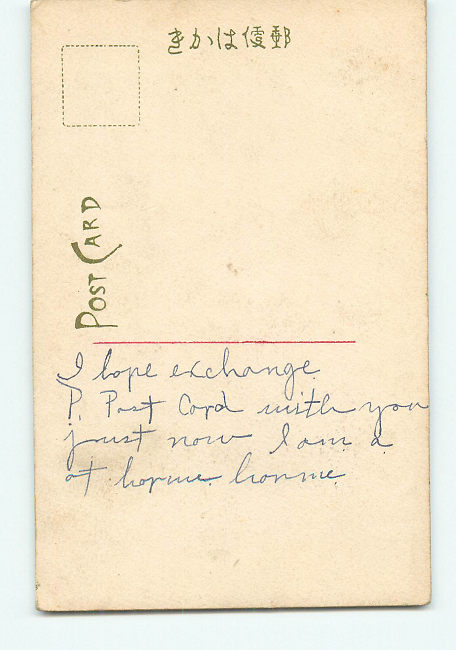 きかは便郵
POST CARD
I hope exchange
P. Post Card with you
just now I am a
at home home